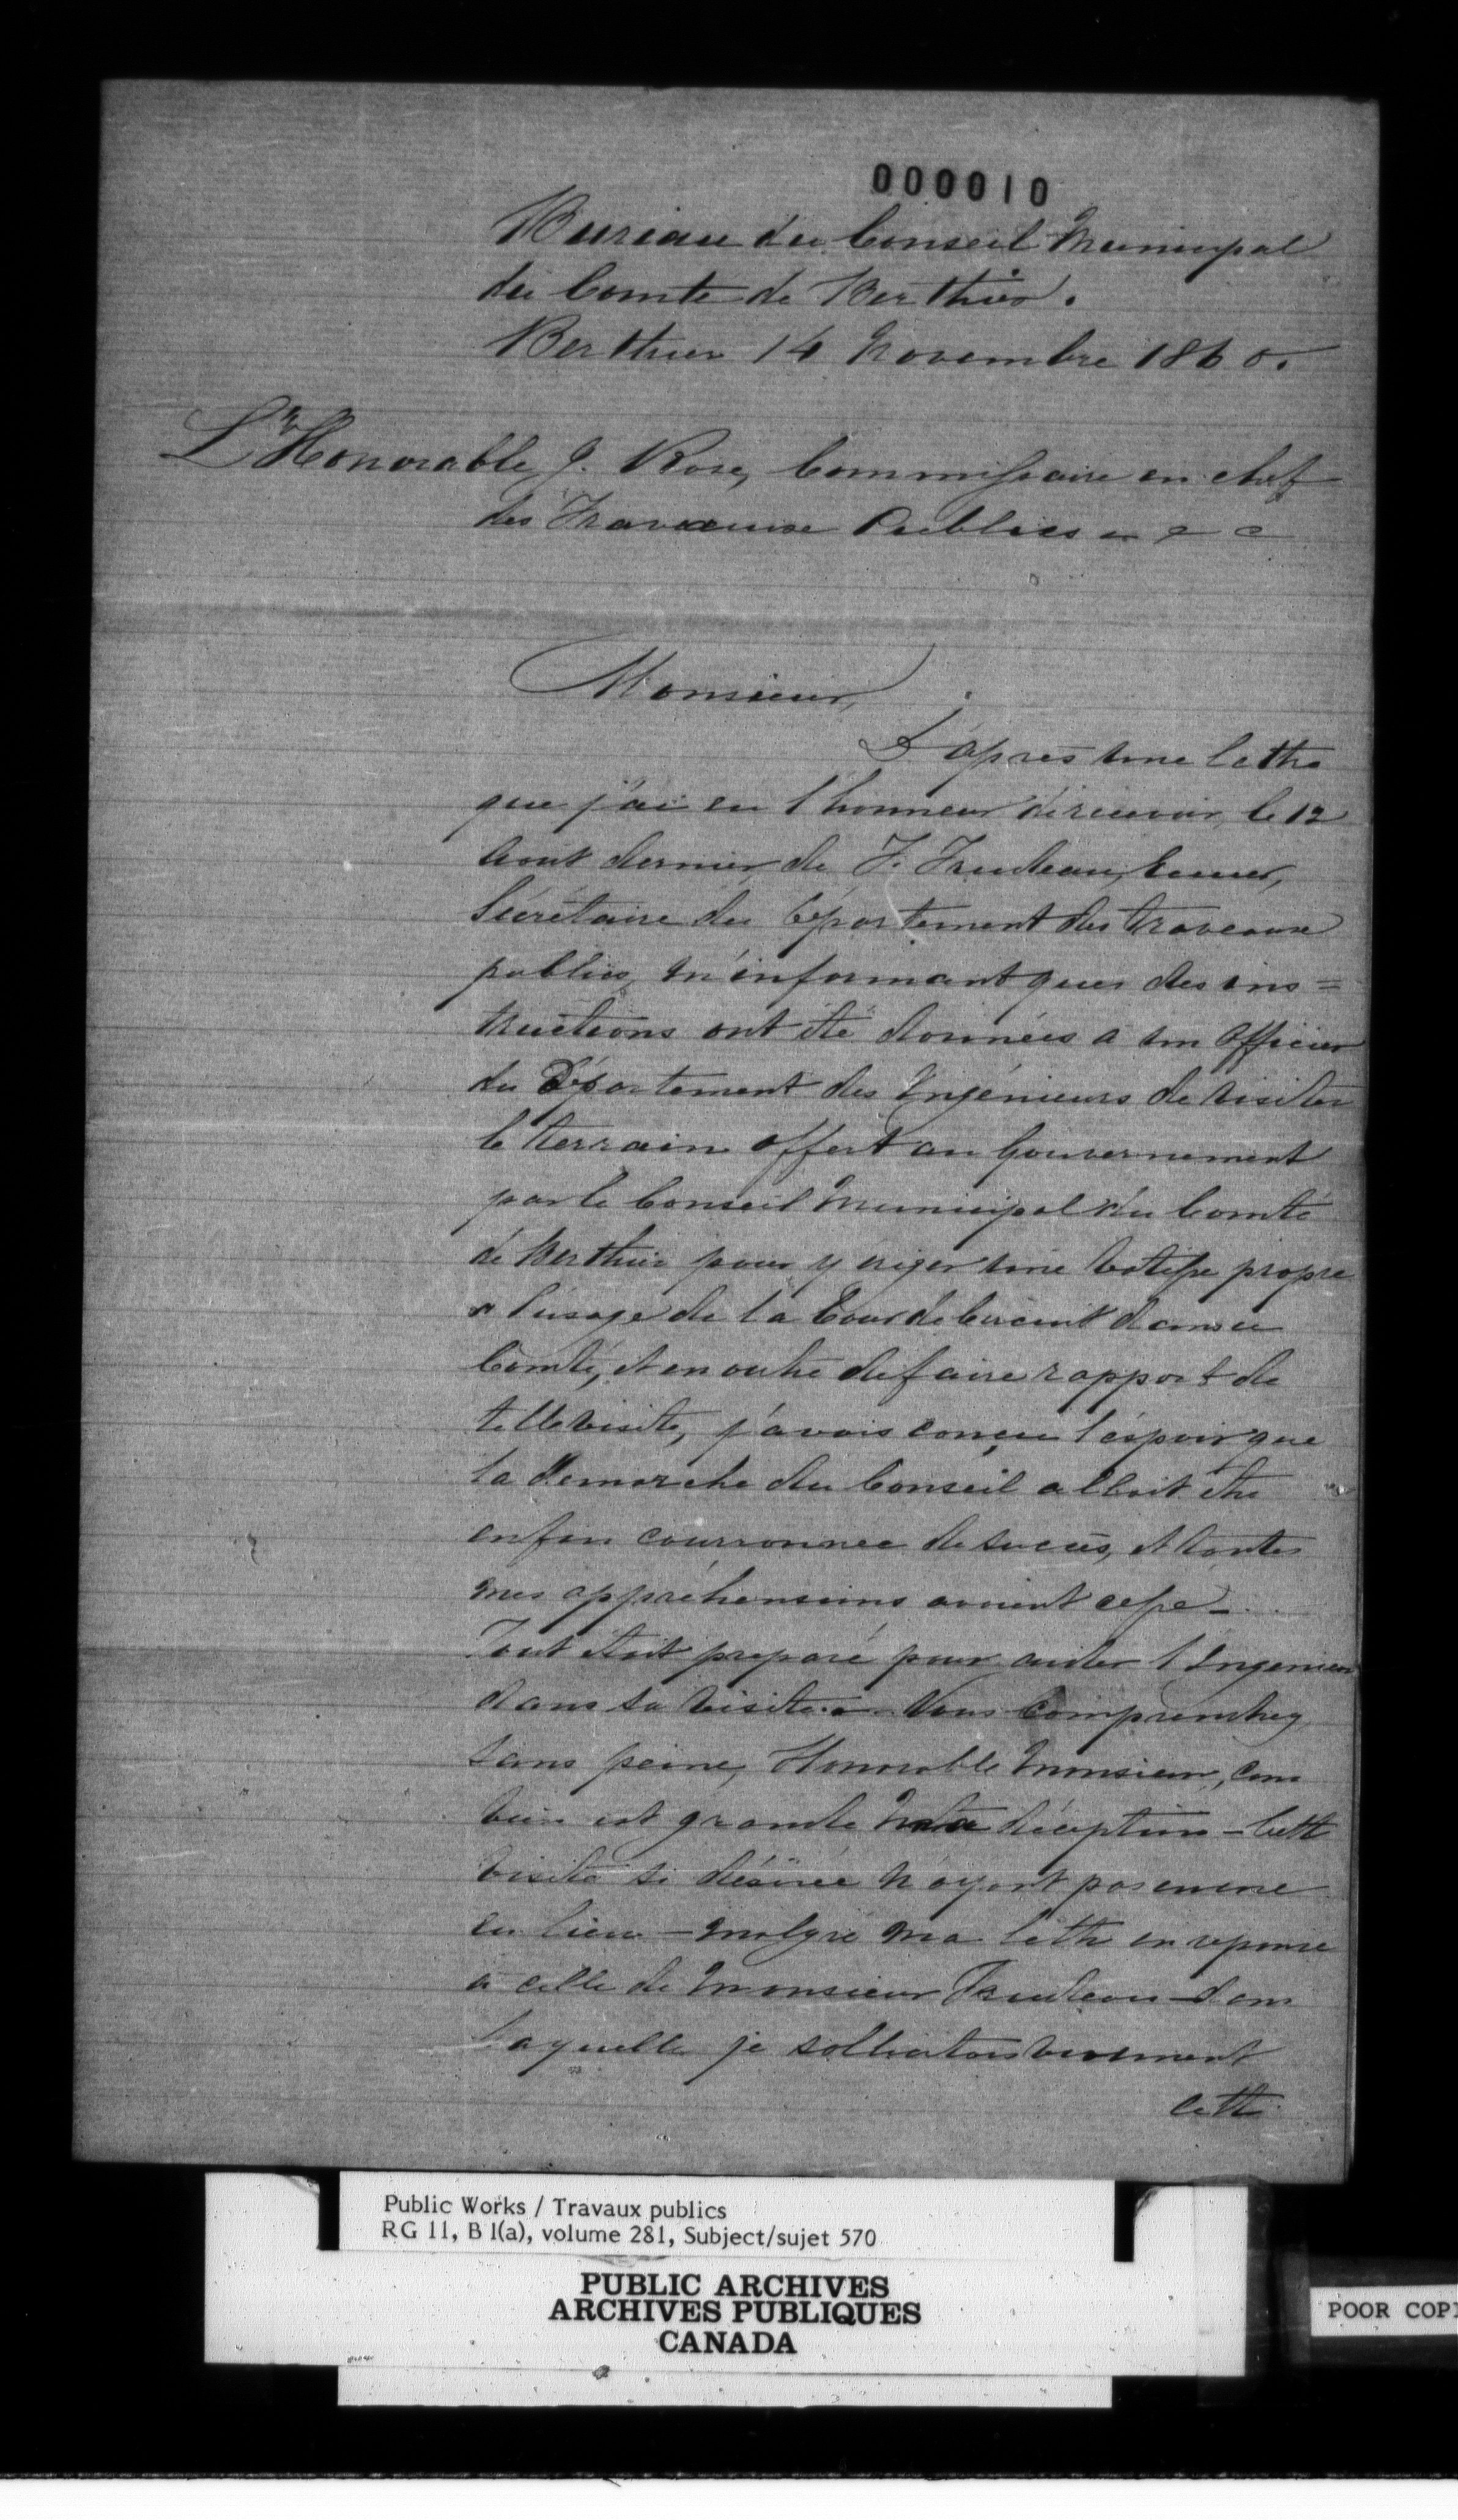 000010
Bureau du Conseil Municipal
du Comté de Berthier.
Berthier 14 Novembre 1860.
L'Honorable J. Rose, Commissaire en chef
des Travaux Publics &c &c
Monsieur,
D'après une lettre
que j'ai eu l'honneur de recevoir, le 12
Aout dernier, de T. Trudeau, Ecuier,
Sécrétaire du Département des travaux
publics, m'informant que des ins=
tructions ont été données a un Officier
du Département des Ingénieurs de visiter
le terrain offert au Gouvernement
par le Conseil Municipal du Comté
de Berthier pour y ériger une batisse propre
a l'usage de la Cour de Circuit dans ce
Comté, et en outre de faire rapport de
telle visite, j'avais conçu l'éspoir que
la demarche du Conseil allait être
enfin couronnee de succès, et toutes
mes appréhensions avaient cessé_
Tout était preparé pour aider l'Ingenieur
dans sa visite. Vous comprendrez
sans peine, Honorable Monsieur, com
bien est grande ma déception _ Cette
visite si désirée n'ayant pas encore
eu lieu _ malgré ma lettre en reponse
a celle de Monsieur Trudeau dans
laquelle je sollicitais vivement
cette
Public Works / Travaux publics
RG 11, B 1(a), volume 281, Subject/sujet 570
PUBLIC ARCHIVES
ARCHIVES PUBLIQUES
CANADA
POOR COPY